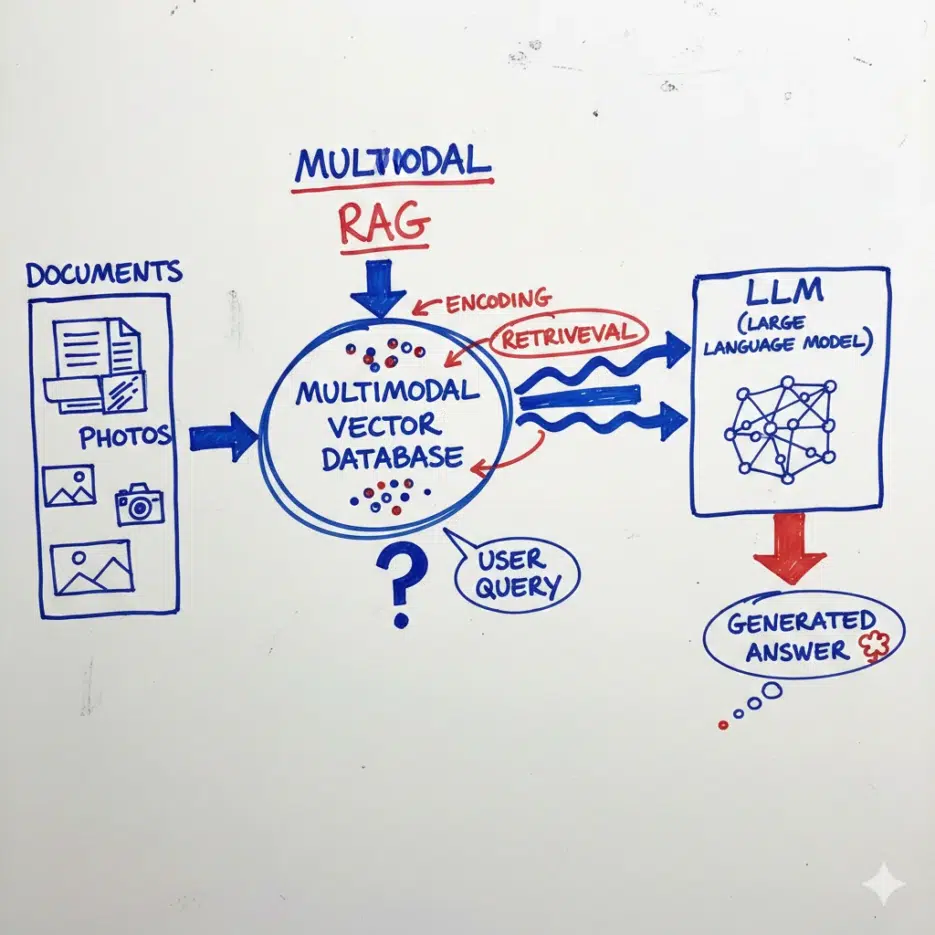 MULTIODAL
RAG
DOCUMENTS
PHOTOS
ENCODING
RETRIVEVAL
MULTIMODAL
VECTOR
DATABASE
?
USER
QUERY
LLM
(LARGE
LANGUAGE MODEL)
GENERATED
ANSWER